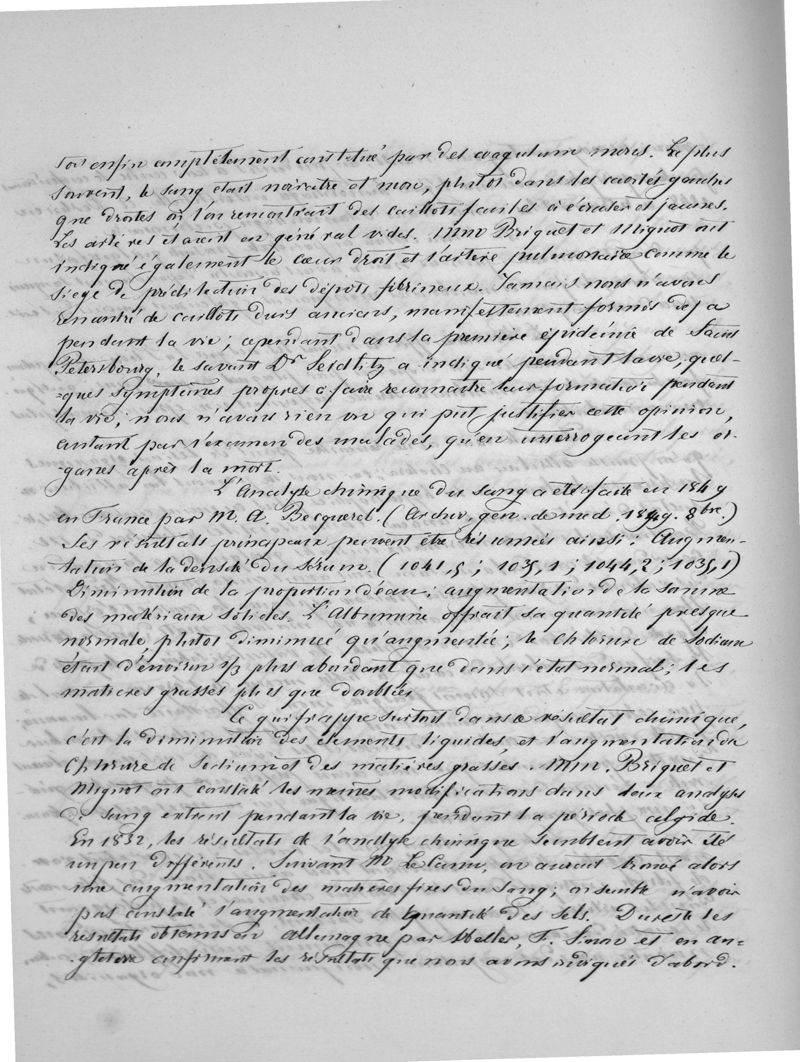 soit enfin complètement constitué par des coagulum mous. Le plus
souvent, le sang était noirâtre et mou, plutot dans les cavités gauches
que droites où l'on remontrait des caillots faciles à écraser et jaunes.
Les artères étaient en général vides. MM Briquet et Mignot ont
indiqué également le cœur droit et l'artère pulmonaire comme le
siege de prédilection des dépôts fibrineux. Jamais nous n'avons
rencontré de caillots durs anciens, manifestement formés deja
pendant la vie; cependant dans la première épidémie de Saint
Petersbourg, le savant Dr Seidlitz a indiqué pendant la vie, quel-
-ques symptômes propres à faire reconnaître leur formation pendant
la vie; nous n'avons rien vu qui put justifier cette opinion,
autant par l'examen des malades, qu'en interrogeant les or-
ganes après la mort.
L'Analyse chimique du sang a été faite en 1849
en France par M. A. Becquerel. (Archiv. gen. de med. 1849. 8bre.)
Les résultats principaux peuvent être résumés ainsi: Augmen-
tation de la densité du sérum. (1041,5; 1035,1; 1044,2; 1035,1)
Diminution de la proportion d'eau; augmentation de la somme
des matériaux solides. L'Albumine offrait sa quantité presque
normale, plutot diminuée qu'augmentée; le chlorure de Sodium
était d'environ 1/3 plus abondant que dans l'état normal; les
matieres grasses plus que doublées
Ce qui frappe surtout dans ce résultat chimique,
c'est la diminution des éléments liquides, et l'augmentation du
Chlorure de Sodium et des matières grasses. MM. Briquet et
Mignot ont constaté les mêmes modifications dans deux analyses
de sang extrait pendant la vie, pendant la période algide.
En 1832, les résultats de l'analyse chimique semblent avoir été
un peu différents. Suivant M Le Canu, on aurait trouvé alors
une augmentation des matières fixes du sang; on semble n'avoir
pas constaté l'augmentation de quantité des Sels. Du reste les
résultats obtenus en Allemagne par Heller, F. Simon et en an-
-gleterre confirment les résultats que nous avons indiqués d'abord.